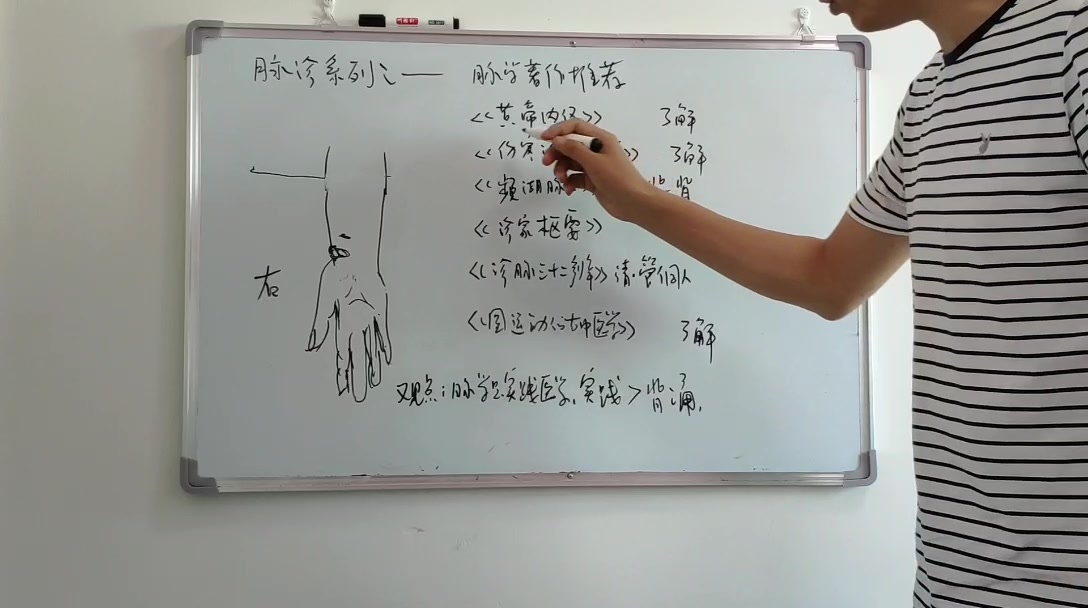 脉诊系列之一 脉学著作推荐
《黄帝内经》 了解
《伤寒 》 了解
《频湖脉 背
《诊家枢要》
《诊脉三十二辩》 清·管 人
《圆运动 古中医学》 了解
右
观点:脉学 实践医学,实践>背诵.